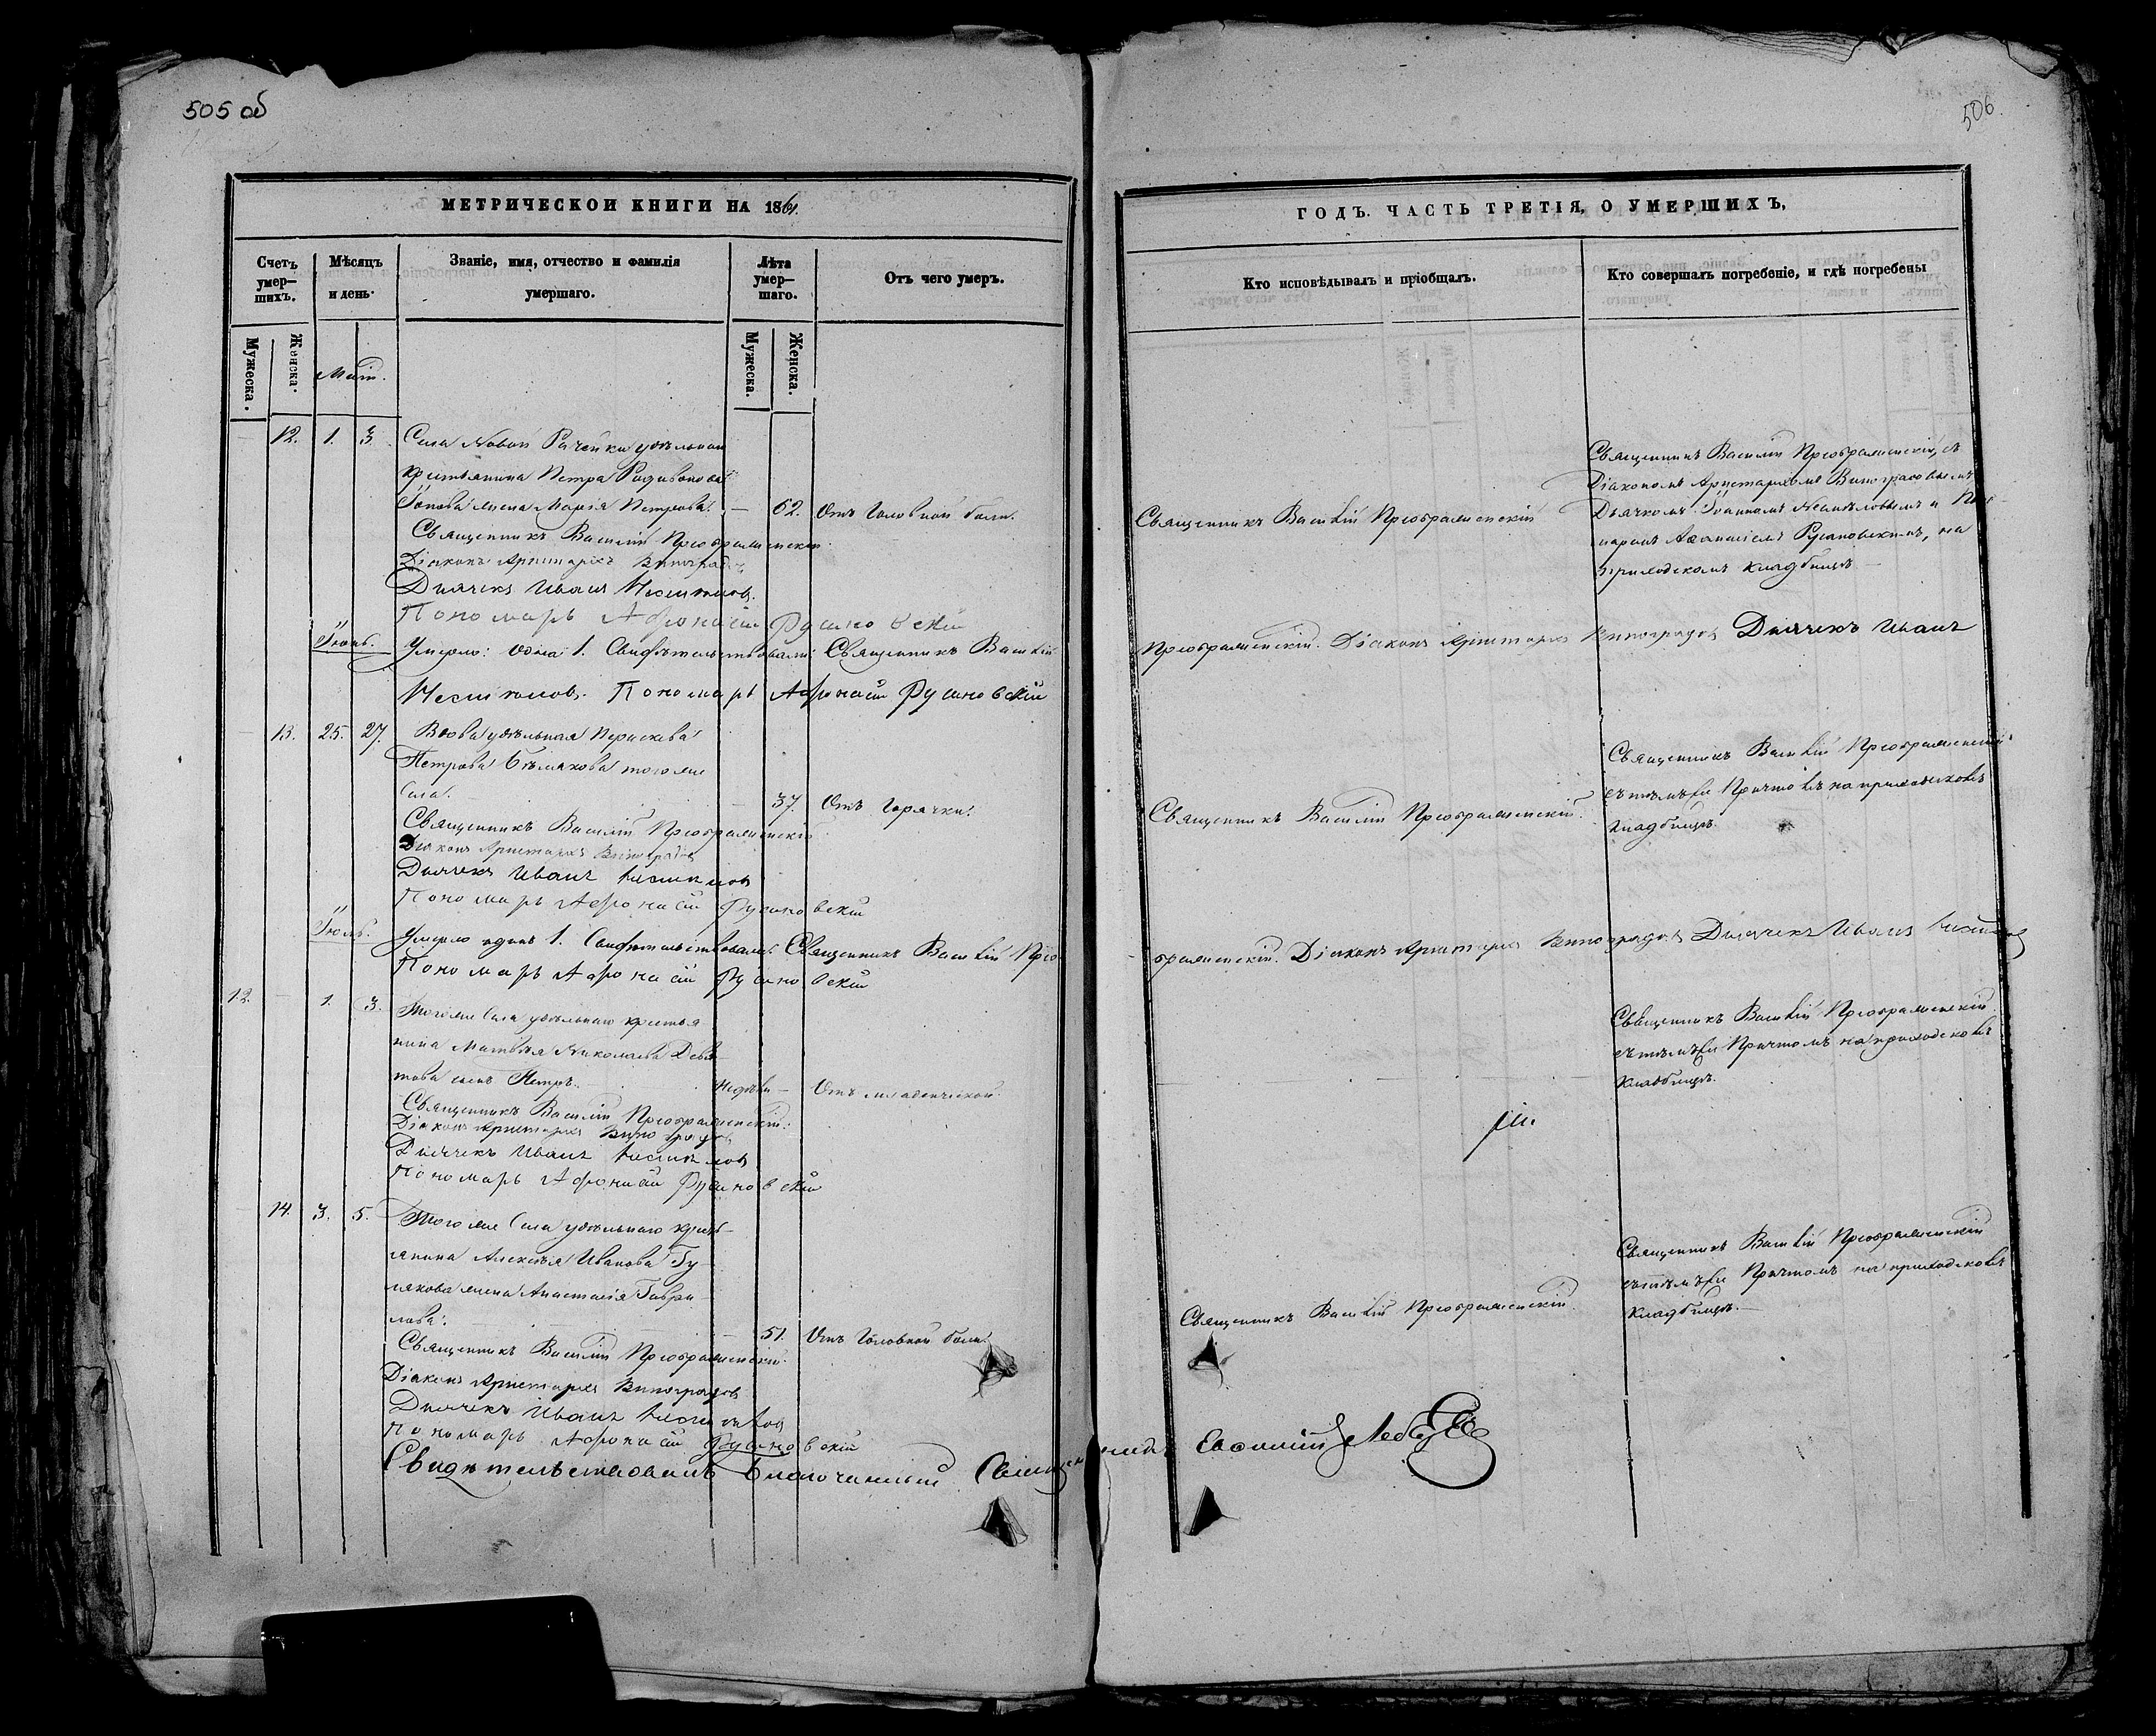 505 об
506
МЕТРИЧЕСКОЙ КНИГИ НА 1861.
ГОДЪ. ЧАСТЬ ТРЕТІЯ, О УМЕРШИХЪ,
Счетъ умер-шихъ.
Мѣсяцъ и день.
Званіе, имя, отчество и фамилія умершаго.
Лѣта умер-шаго.
Отъ чего умеръ.
Кто исповѣдывалъ и пріобщалъ.
Кто совершалъ погребеніе, и гдѣ погребены
Мужеска.
Женска.
Мужеска.
Женска.
Маій.
12. 1. 3. Села Новой Рачейки удѣльнаго
крестьянина Петра Родивонова
жена Марія Петрова. — 62. Отъ Головной боли.
Священникъ Василій Преображенскій
Священникъ Василій Преображенскій, съ
Діакономъ Аристархомъ Виноградовымъ
Дьячкомъ Іоанномъ и По-
номаремъ Аѳанасіемъ Русановскимъ, на
приходскомъ кладбищѣ —
Священникъ Василій Преображенскій
Діаконъ Аристархъ Виноградовъ
Дьячекъ Иванъ
Пономарь Афонасій Русановскій
Іюнь.
Умерло: одна 1. Свидѣтельствовали: Священникъ Василій
Преображенскій. Діаконъ Аристархъ Виноградовъ Дьячекъ Иванъ
Пономарь Афонасій Русановскій
13. 25. 27. Вдова удѣльная Параскева
Петрова того же
Села. — 37. Отъ Горячки.
Священникъ Василій Преображенскій.
Священникъ Василій Преображенскій
съ тѣмъ же Причтомъ на приходскомъ
кладбищѣ.
Священникъ Василій Преображенскій
Діаконъ Аристархъ Виноградовъ
Дьячекъ Иванъ
Пономарь Афонасій Русановскій
Іюль.
Умерло одинъ 1. Свидѣтельствовали: Священникъ Василій Прео-
браженскій. Діаконъ Аристархъ Виноградовъ Дьячекъ Иванъ
Пономарь Афонасій Русановскій
12. — 1. 3. Того же Села удѣльнаго крестья-
нина Матвѣя Николаева
сынъ Петръ. — недѣли — Отъ младенческой.
Священникъ Василій Преображенскій
съ тѣмъ же Причтомъ на приходскомъ
кладбищѣ.
Священникъ Василій Преображенскій.
Діаконъ Аристархъ Виноградовъ
Дьячекъ Иванъ
Пономарь Афонасій Русановскій
14. 3. 5. Того же Села удѣльнаго кресть-
янина Алексѣя Иванова Гу-
жена Анастасія Гаври-
лова. — 51. Отъ Головной боли.
Священникъ Василій Преображенскій.
Священникъ Василій Преображенскій
съ тѣмъ же Причтомъ на приходскомъ
кладбищѣ. —
Священникъ Василій Преображенскій.
Діаконъ Аристархъ Виноградовъ
Дьячекъ Иванъ
Пономарь Афонасій Русановскій
Свидѣтельствовалъ Благочинный Священникъ